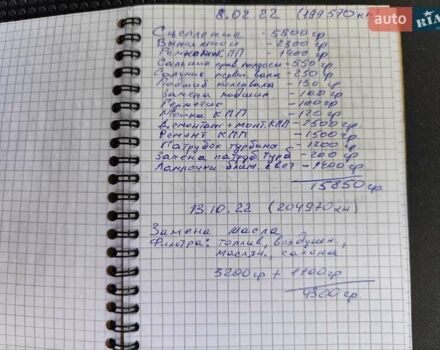 8.02.22 (199570 км)
Сцепление - 5800 гр
Выжимной - 2300 гр
Ремком. КПП - 1400 гр
Сальник прав полуоси - 550 гр
Сальник первич. вала - 250 гр
Подшип коленвала - 130 гр
Замена подшип - 100 гр
Герметик - 100 гр
Мойка КПП - 120 гр
Демонтаж + монт. КПП - 2500 гр
Ремонт КПП - 1500 гр.
Патрубок турбина - 1200 гр
Замена патруб. турб - 200 гр
Лампочки ближ. свет - гр
15850 гр.
13.10.22 (204970 км)
Замена масла
Фильтра: топлив, воздушн.,
маслян., салона
3200 гр + 1100 гр
4300 гр
auto RIA